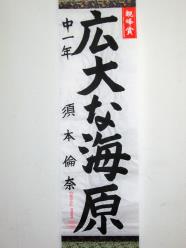 親峰賞
広大な海原
中一年
須本倫奈